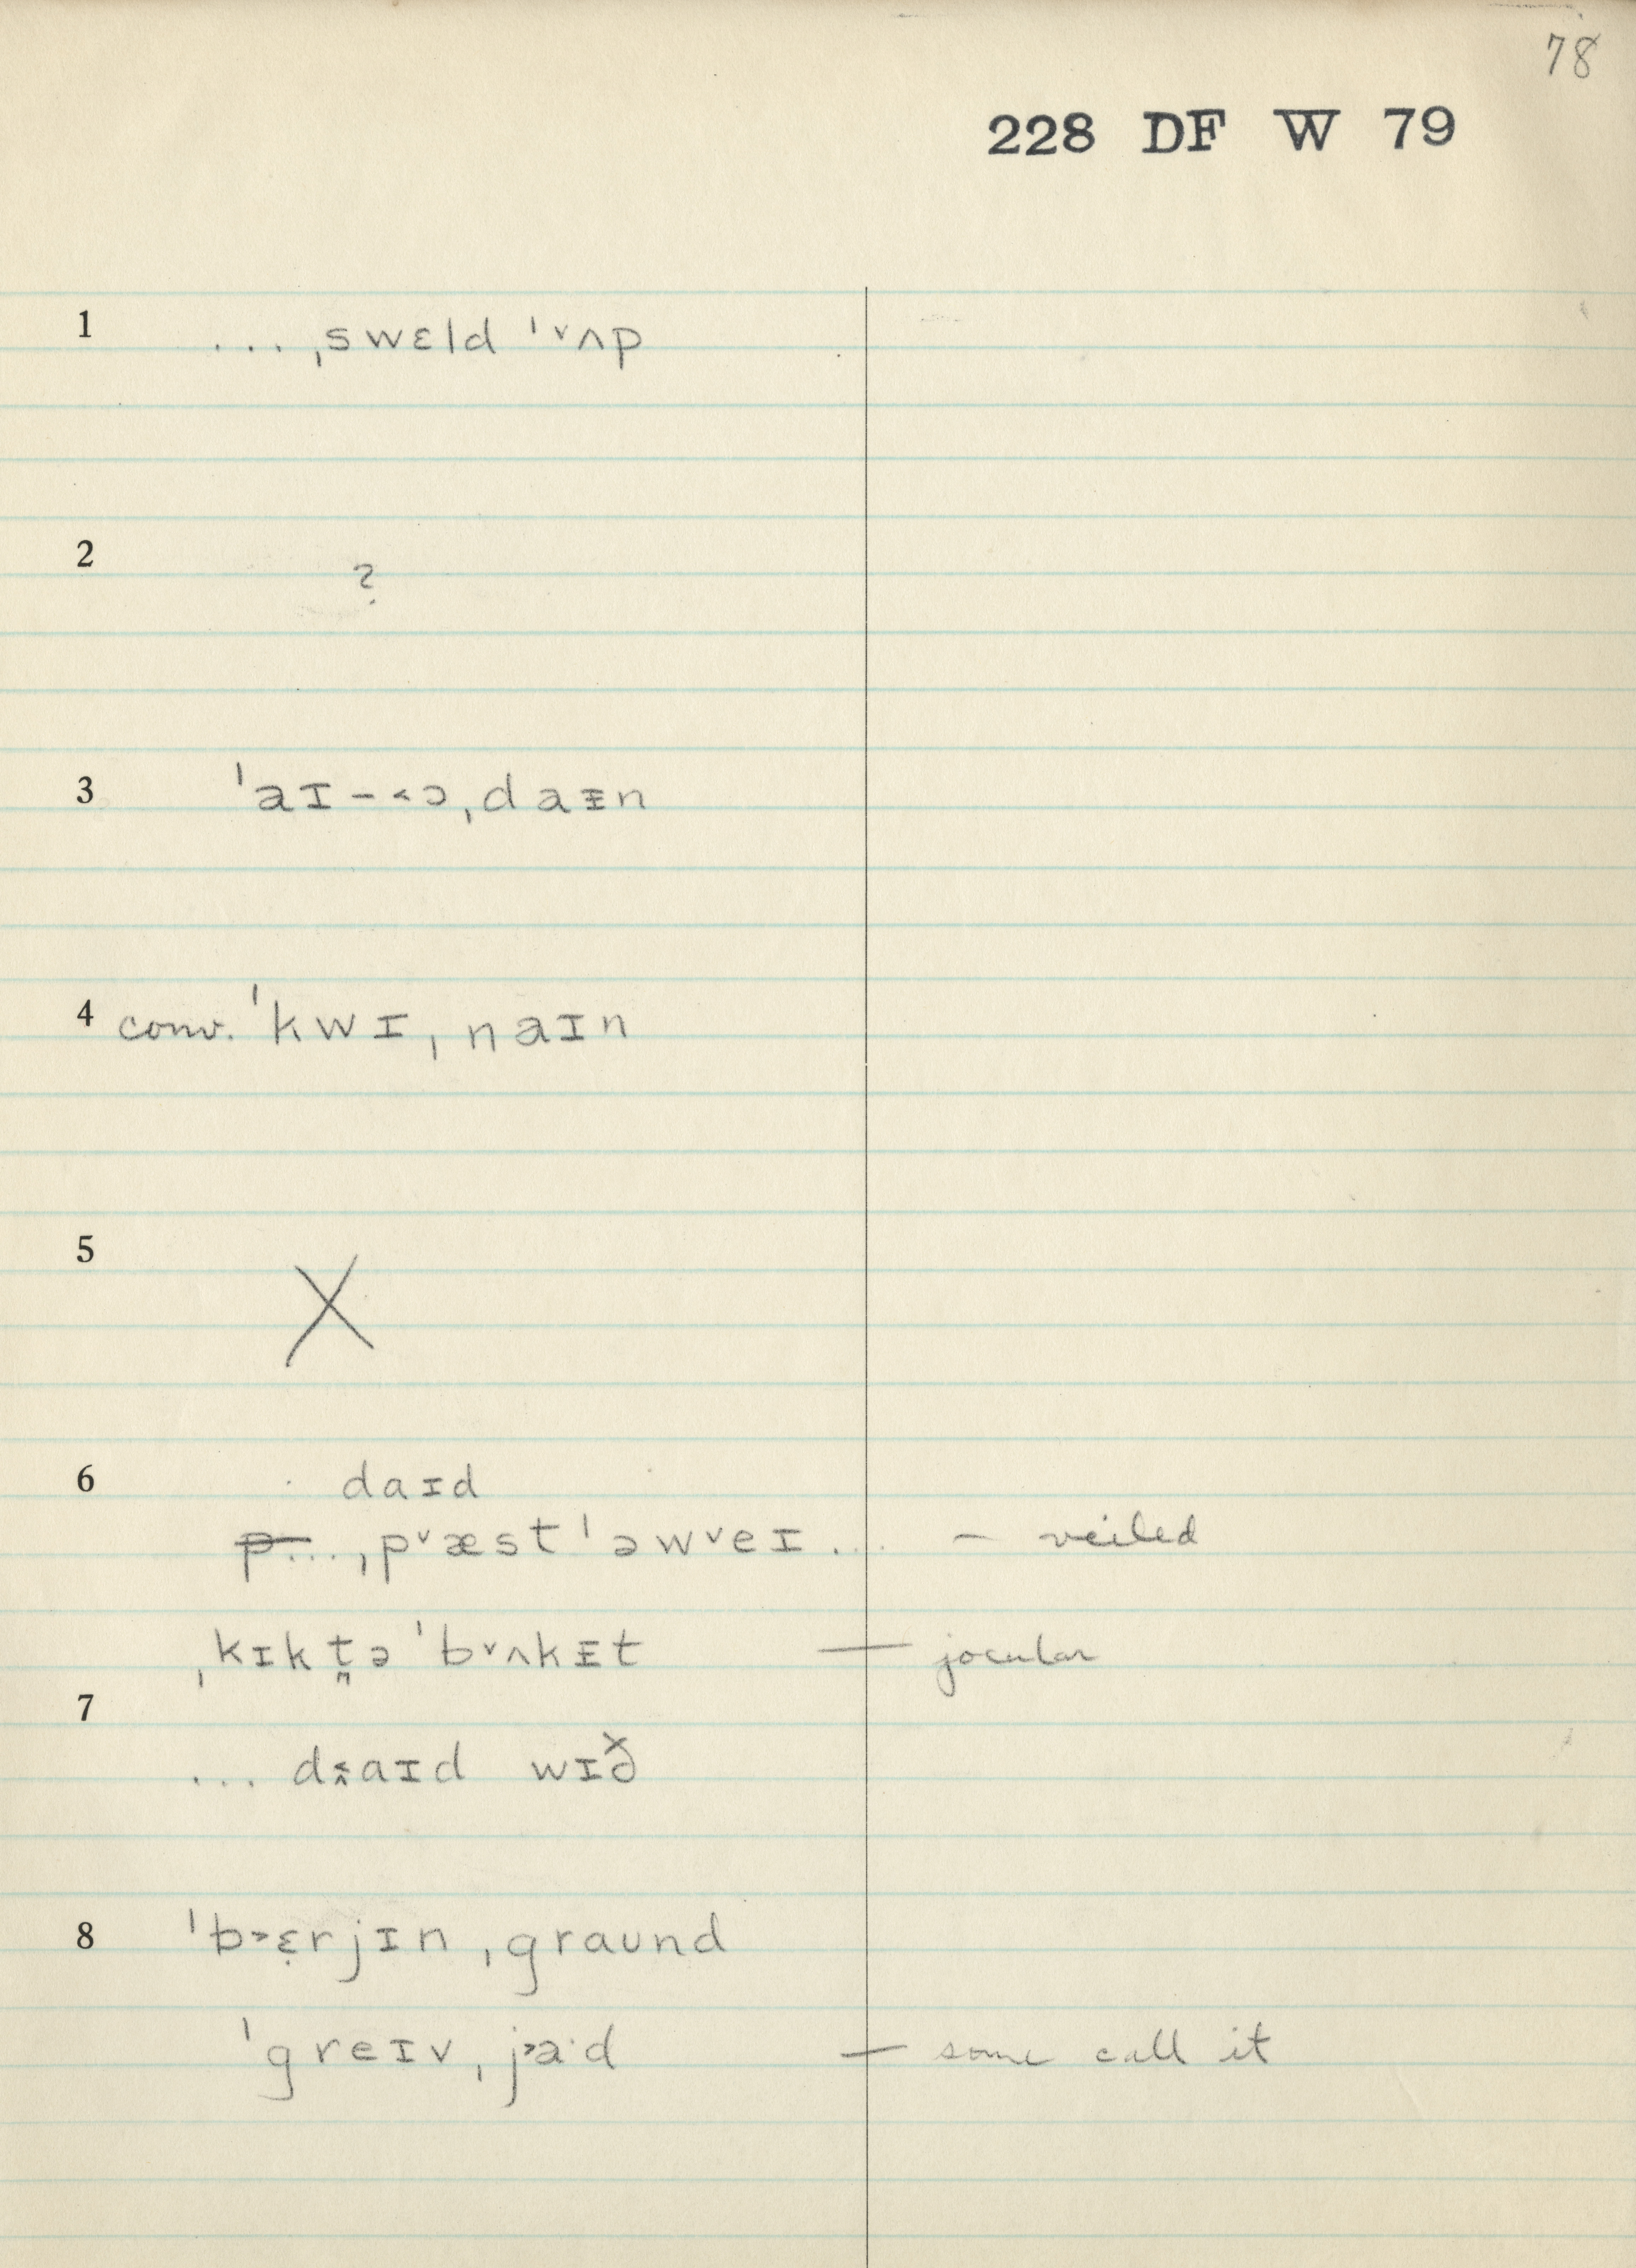 78
228 DF W 79
1 ... ˌswɛld ˈ˅ʌp
2 ?
3 ˈaɪ-˂ɔˌdaᵻn
4 conv. ˈkwɪˌnaɪn
5 X
6 daɪd
p... ˌp˅æst ˈəw˅eɪ... – veiled
ˌkɪk t̪ə ˈb˅ʌkᵻt — jocular
7
... daɪd wɪð
8 ˈb˃ɛrjɪnˌgraʊnd
ˈgreɪvˌj˃a·d — some call it